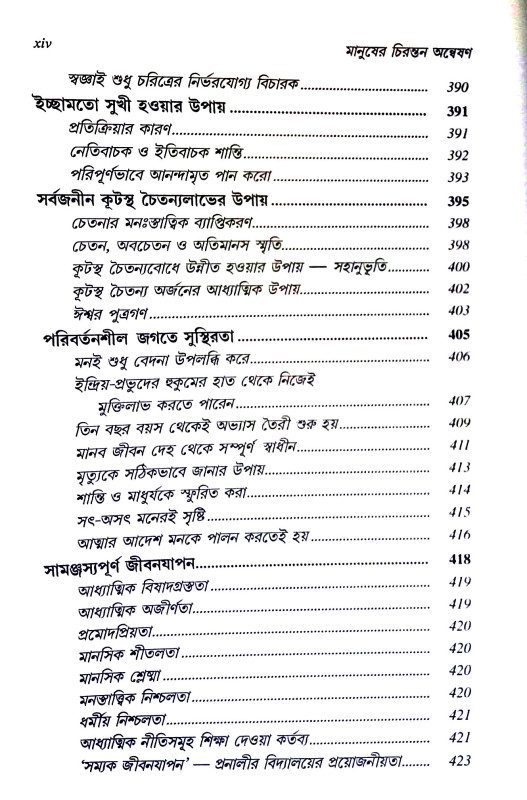 xiv
মানুষের চিরন্তন অন্বেষণ
স্বজ্ঞাই শুধু চরিত্রের নির্ভরযোগ্য বিচারক .......... 390
ইচ্ছামতো সুখী হওয়ার উপায় .......... 391
প্রতিক্রিয়ার কারণ .......... 391
নেতিবাচক ও ইতিবাচক শাস্তি .......... 392
পরিপূর্ণভাবে আনন্দামৃত পান করো .......... 393
সর্বজনীন কূটস্থ চৈতন্যলাভের উপায় .......... 395
চেতনার মনঃস্তাত্বিক ব্যাপ্তিকরণ .......... 398
চেতন, অবচেতন ও অতিমানস স্মৃতি .......... 398
কূটস্থ চৈতন্যবোধে উন্নীত হওয়ার উপায় — সহানুভূতি .......... 400
কূটস্থ চৈতন্য অর্জনের আধ্যাত্মিক উপায় .......... 402
ঈশ্বর পুত্রগণ .......... 403
পরিবর্তনশীল জগতে সুস্থিরতা .......... 405
মনই শুধু বেদনা উপলব্ধি করে .......... 406
ইন্দ্রিয়-প্রভুদের হুকুমের হাত থেকে নিজেই
মুক্তিলাভ করতে পারেন .......... 407
তিন বছর বয়স থেকেই অভ্যাস তৈরী শুরু হয় .......... 409
মানব জীবন দেহ থেকে সম্পূর্ণ স্বাধীন .......... 411
মৃত্যুকে সঠিকভাবে জানার উপায় .......... 413
শান্তি ও মাধুর্যকে স্ফুরিত করা .......... 414
সৎ-অসৎ মনেরই সৃষ্টি .......... 415
আত্মার আদেশ মনকে পালন করতেই হয় .......... 416
সামঞ্জস্যপূর্ণ জীবনযাপন .......... 418
আধ্যাত্মিক বিষাদগ্রস্ততা .......... 419
আধ্যাত্মিক অজীর্ণতা .......... 419
প্রমোদপ্রিয়তা .......... 420
মানসিক শীতলতা .......... 420
মানসিক শ্লেষ্মা .......... 420
মনস্তাত্ত্বিক নিশ্চলতা .......... 420
ধর্মীয় নিশ্চলতা .......... 421
আধ্যাত্মিক নীতিসমূহ শিক্ষা দেওয়া কর্তব্য .......... 421
‘সম্যক জীবনযাপন’ — প্রনালীর বিদ্যালয়ের প্রয়োজনীয়তা .......... 423